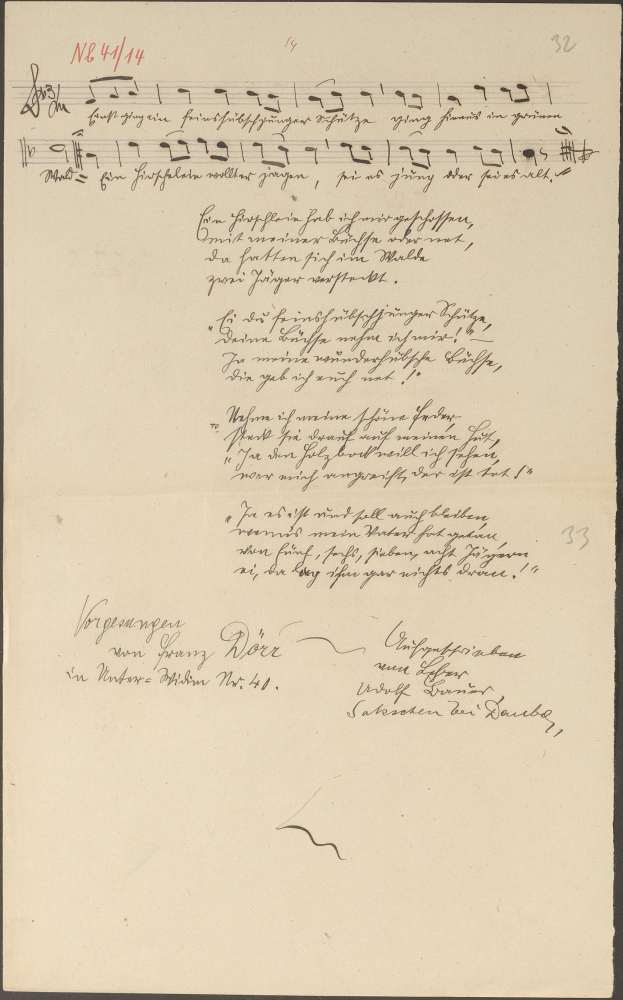 NB 41/14
14
32
Einst ging ein feinshübschjunger Schütze ging hinaus in grünen
Wald = Ein Hirschelein wollt er jagen, sei es jung oder sei es alt."
Ein Hirschlein hab ich mir geschossen,
mit meiner Büchse oder net,
da hatten sich im Walde
zwei Jäger versteckt.
"Ei du feinshübschjunger Schütze,
Deine Büchse nehm ich mir!" –
Ja meine wunderhübsche Büchse,
die geb ich euch net!"
Nehm ich meine schöne Feder,
Steck sie drauf auf meinen Hut,
"Ja den Holzbock will ich sehen,
wer mich angreift, der ist tot!"
"Ja es ist und soll auch bleiben,
mein Vater hat getan,
von fünf, sechs, sieben, acht Jägern
ei, da lag ihm gar nichts dran!"
33
Vorgesungen
von Franz Dörr
in Unter-Widim Nr. 40.
Aufgeschrieben
von Lehrer
Adolf Bauer,
bei Dauba,